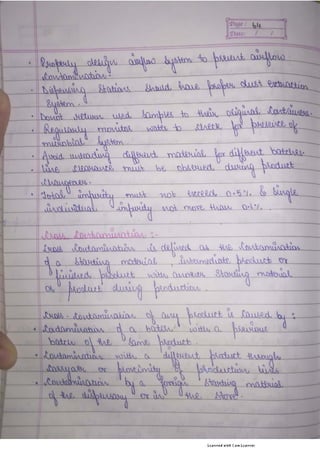 Page: 64
Date: / /
• Properly design airflow system to prevent airflow
contamination.
• Dispensing stations should have proper dust extraction
system.
• Donot return used samples to their original containers.
• Regularly monitor water to check for presence of
microbial system
• Avoid unloading different material for different batches.
• Line clearance must be observed during product
changeover.
• Total impurity must not exceed 0.5% & single
individual impurity not more than 0.1%.
Cross Contamination :-
Cross Contamination is defined as the contamination
of a starting material, intermediate product or
finished product with another starting material
or product during production.
Cross-Contamination of any product is caused by :
• Contamination of a batch with a previous
batch of the same product.
• Contamination with a different product through
carryover or proximity of production lines
• Contamination by a foreign starting material
of the dispensary or in the store.
Scanned with CamScanner